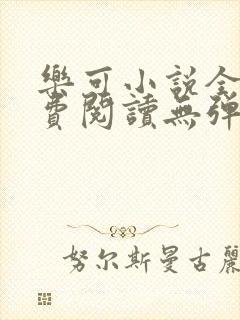 樂可小說全
費閱讀無彈
努尔斯曼古麗